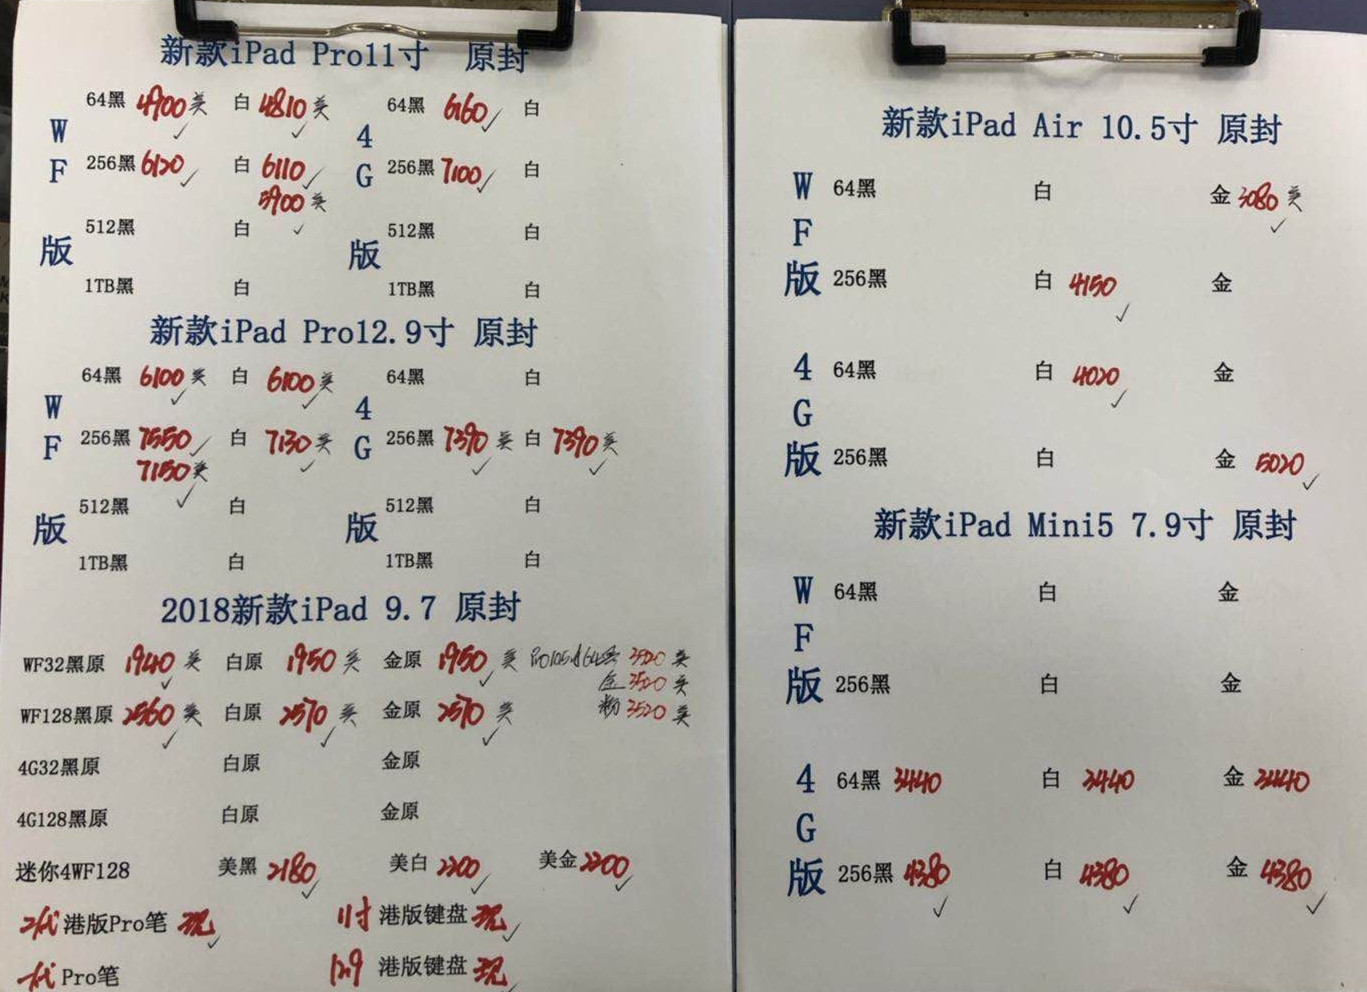 新款iPad Pro11寸 原封
64黑 4900美 白 4810美 64黑 6160 白
WF版 4G版
256黑 6120 白 6110 256黑 7100 白
5900美
512黑 白 512黑 白
1TB黑 白 1TB黑 白
新款iPad Pro12.9寸 原封
64黑 6100美 白 6100美 64黑 白
WF版 4G版
256黑 7550 白 7130美 256黑 7390美 白 7390美
7150美
512黑 白 512黑 白
1TB黑 白 1TB黑 白
2018新款iPad 9.7 原封
WF32黑原 1940美 白原 1950美 金原 1950美 3520美
金 3520美
WF128黑原 2560美 白原 2570美 金原 2570美 粉 3520美
4G32黑原 白原 金原
4G128黑原 白原 金原
迷你4WF128 美黑 2180 美白 2200 美金 2200
2代 港版Pro笔 现 11寸 港版键盘 现
一代 Pro笔 12.9 港版键盘 现
新款iPad Air 10.5寸 原封
WF版
64黑 白 金 3080美
256黑 白 4150 金
4G版
64黑 白 4020 金
256黑 白 金 5020
新款iPad Mini5 7.9寸 原封
WF版
64黑 白 金
256黑 白 金
4G版
64黑 3440 白 3440 金 3440
256黑 4380 白 4380 金 4380